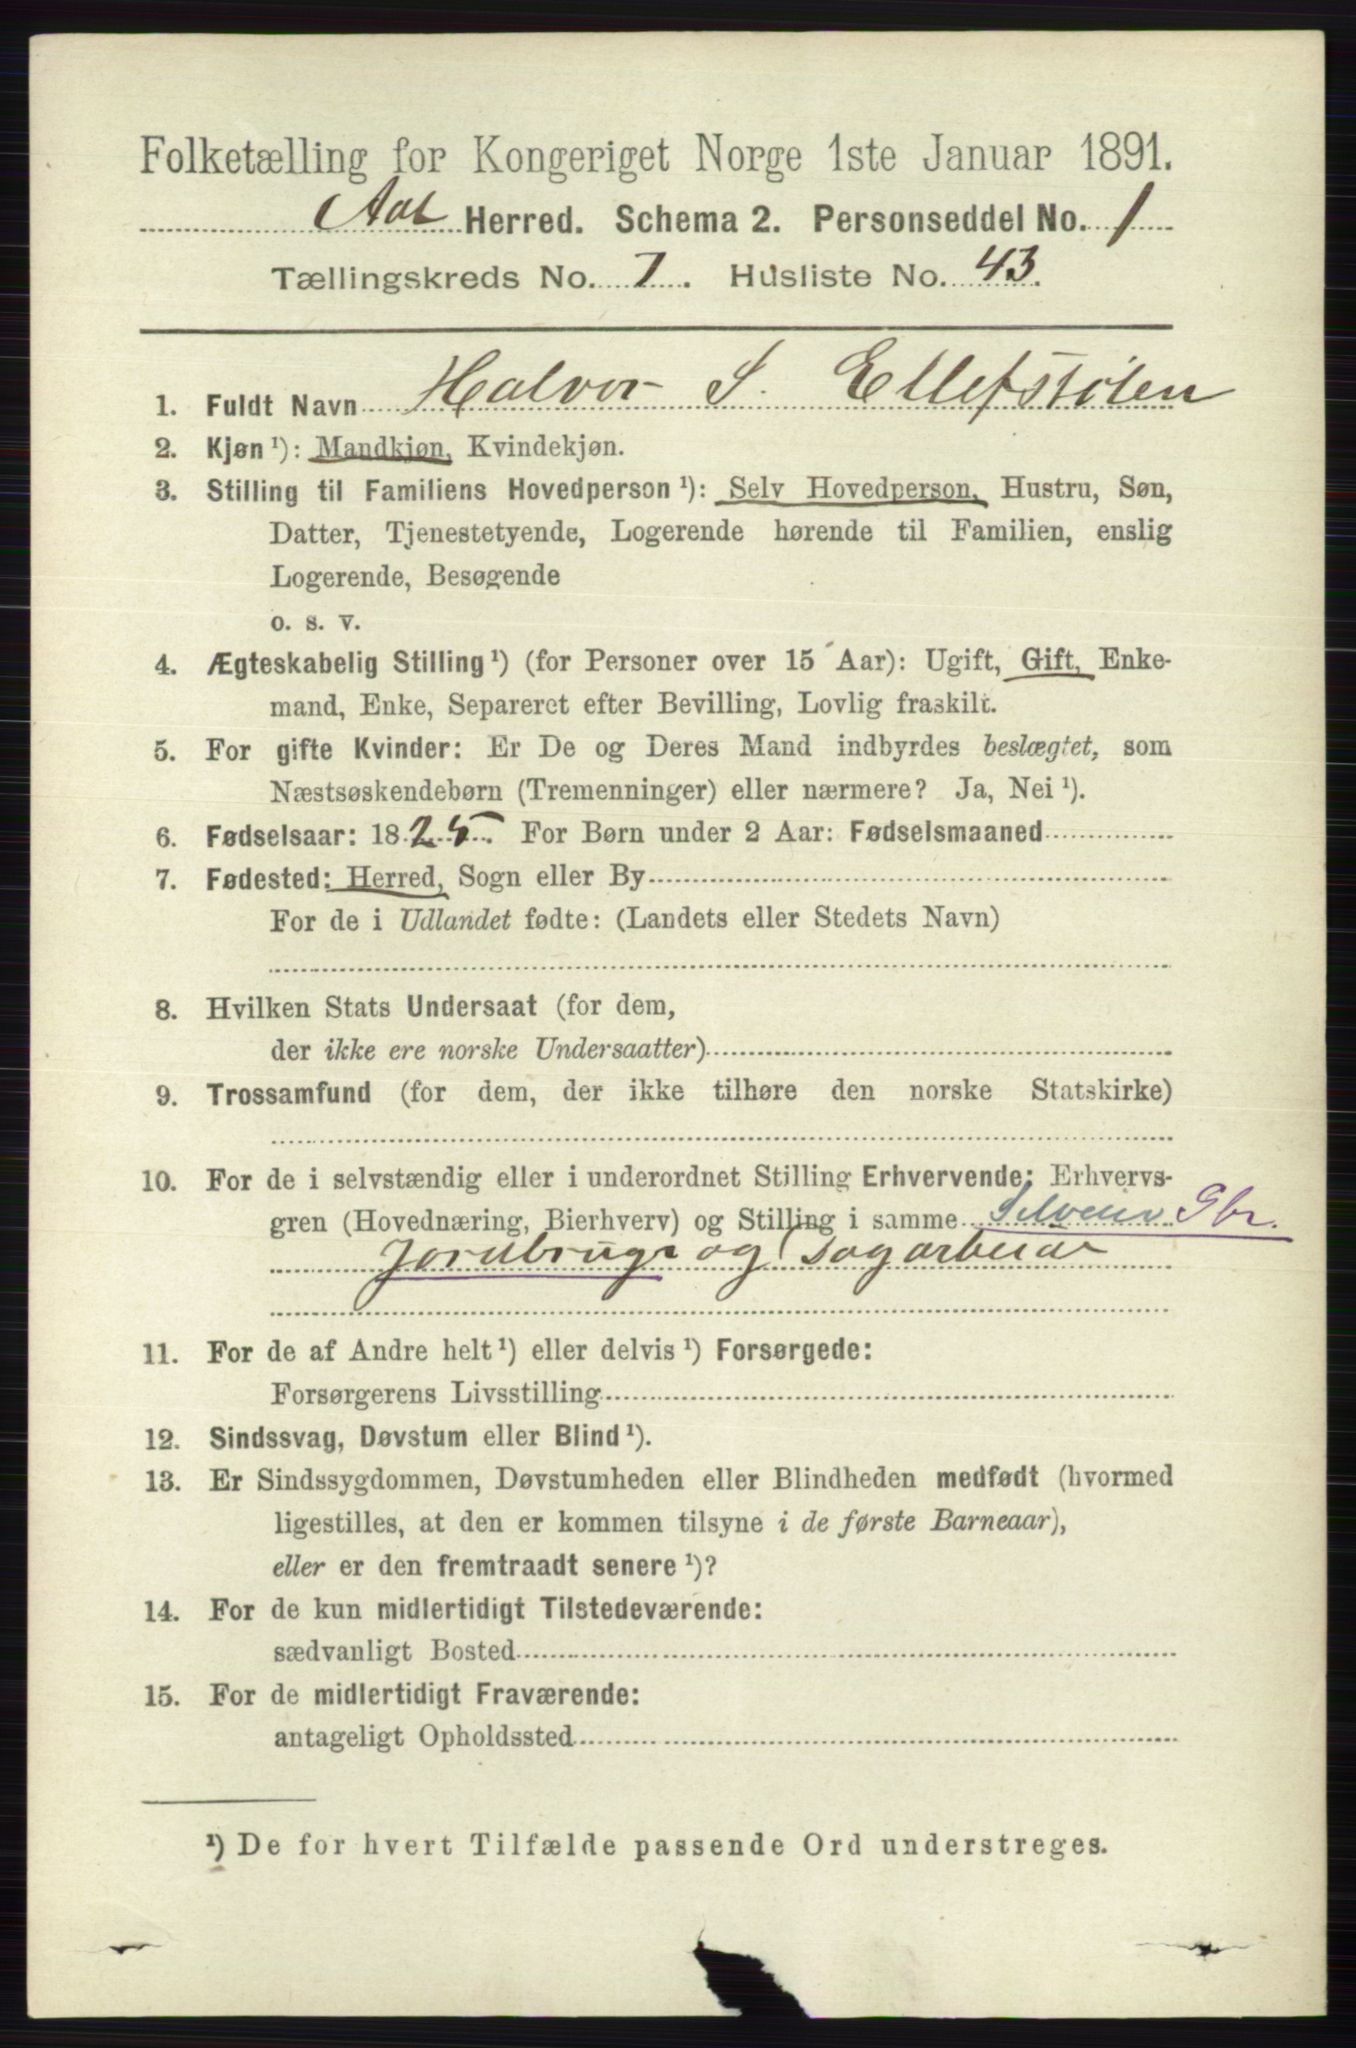 Folketælling for Kongeriget Norge 1ste Januar 1891.
Aal Herred. Schema 2. Personseddel No. 1
Tællingskreds No. 7. Husliste No. 43.
1. Fuldt Navn Halvor S. Ellefstølen
2. Kjøn ¹): Mandkjøn, Kvindekjøn.
3. Stilling til Familiens Hovedperson ¹): Selv Hovedperson, Hustru, Søn,
Datter, Tjenestetyende, Logerende hørende til Familien, enslig
Logerende, Besøgende
o. s. v.
4. Ægteskabelig Stilling ¹) (for Personer over 15 Aar): Ugift, Gift, Enke-
mand, Enke, Separeret efter Bevilling, Lovlig fraskilt.
5. For gifte Kvinder: Er De og Deres Mand indbyrdes beslægtet, som
Næstsøskendebørn (Tremenninger) eller nærmere? Ja, Nei ¹).
6. Fødselsaar: 1825. For Børn under 2 Aar: Fødselsmaaned
7. Fødested: Herred, Sogn eller By
For de i Udlandet fødte: (Landets eller Stedets Navn)
8. Hvilken Stats Undersaat (for dem,
der ikke ere norske Undersaatter)
9. Trossamfund (for dem, der ikke tilhøre den norske Statskirke)
10. For de i selvstændig eller i underordnet Stilling Erhvervende: Erhvervs-
gren (Hovednæring, Bierhverv) og Stilling i samme Selveier Gbr.
Jordbruge og Dagarbeide
11. For de af Andre helt ¹) eller delvis ¹) Forsørgede:
Forsørgerens Livsstilling
12. Sindssvag, Døvstum eller Blind ¹).
13. Er Sindssygdommen, Døvstumheden eller Blindheden medfødt (hvormed
ligestilles, at den er kommen tilsyne i de første Barneaar),
eller er den fremtraadt senere ¹)?
14. For de kun midlertidigt Tilstedeværende:
sædvanligt Bosted
15. For de midlertidigt Fraværende:
antageligt Opholdssted
¹) De for hvert Tilfælde passende Ord understreges.